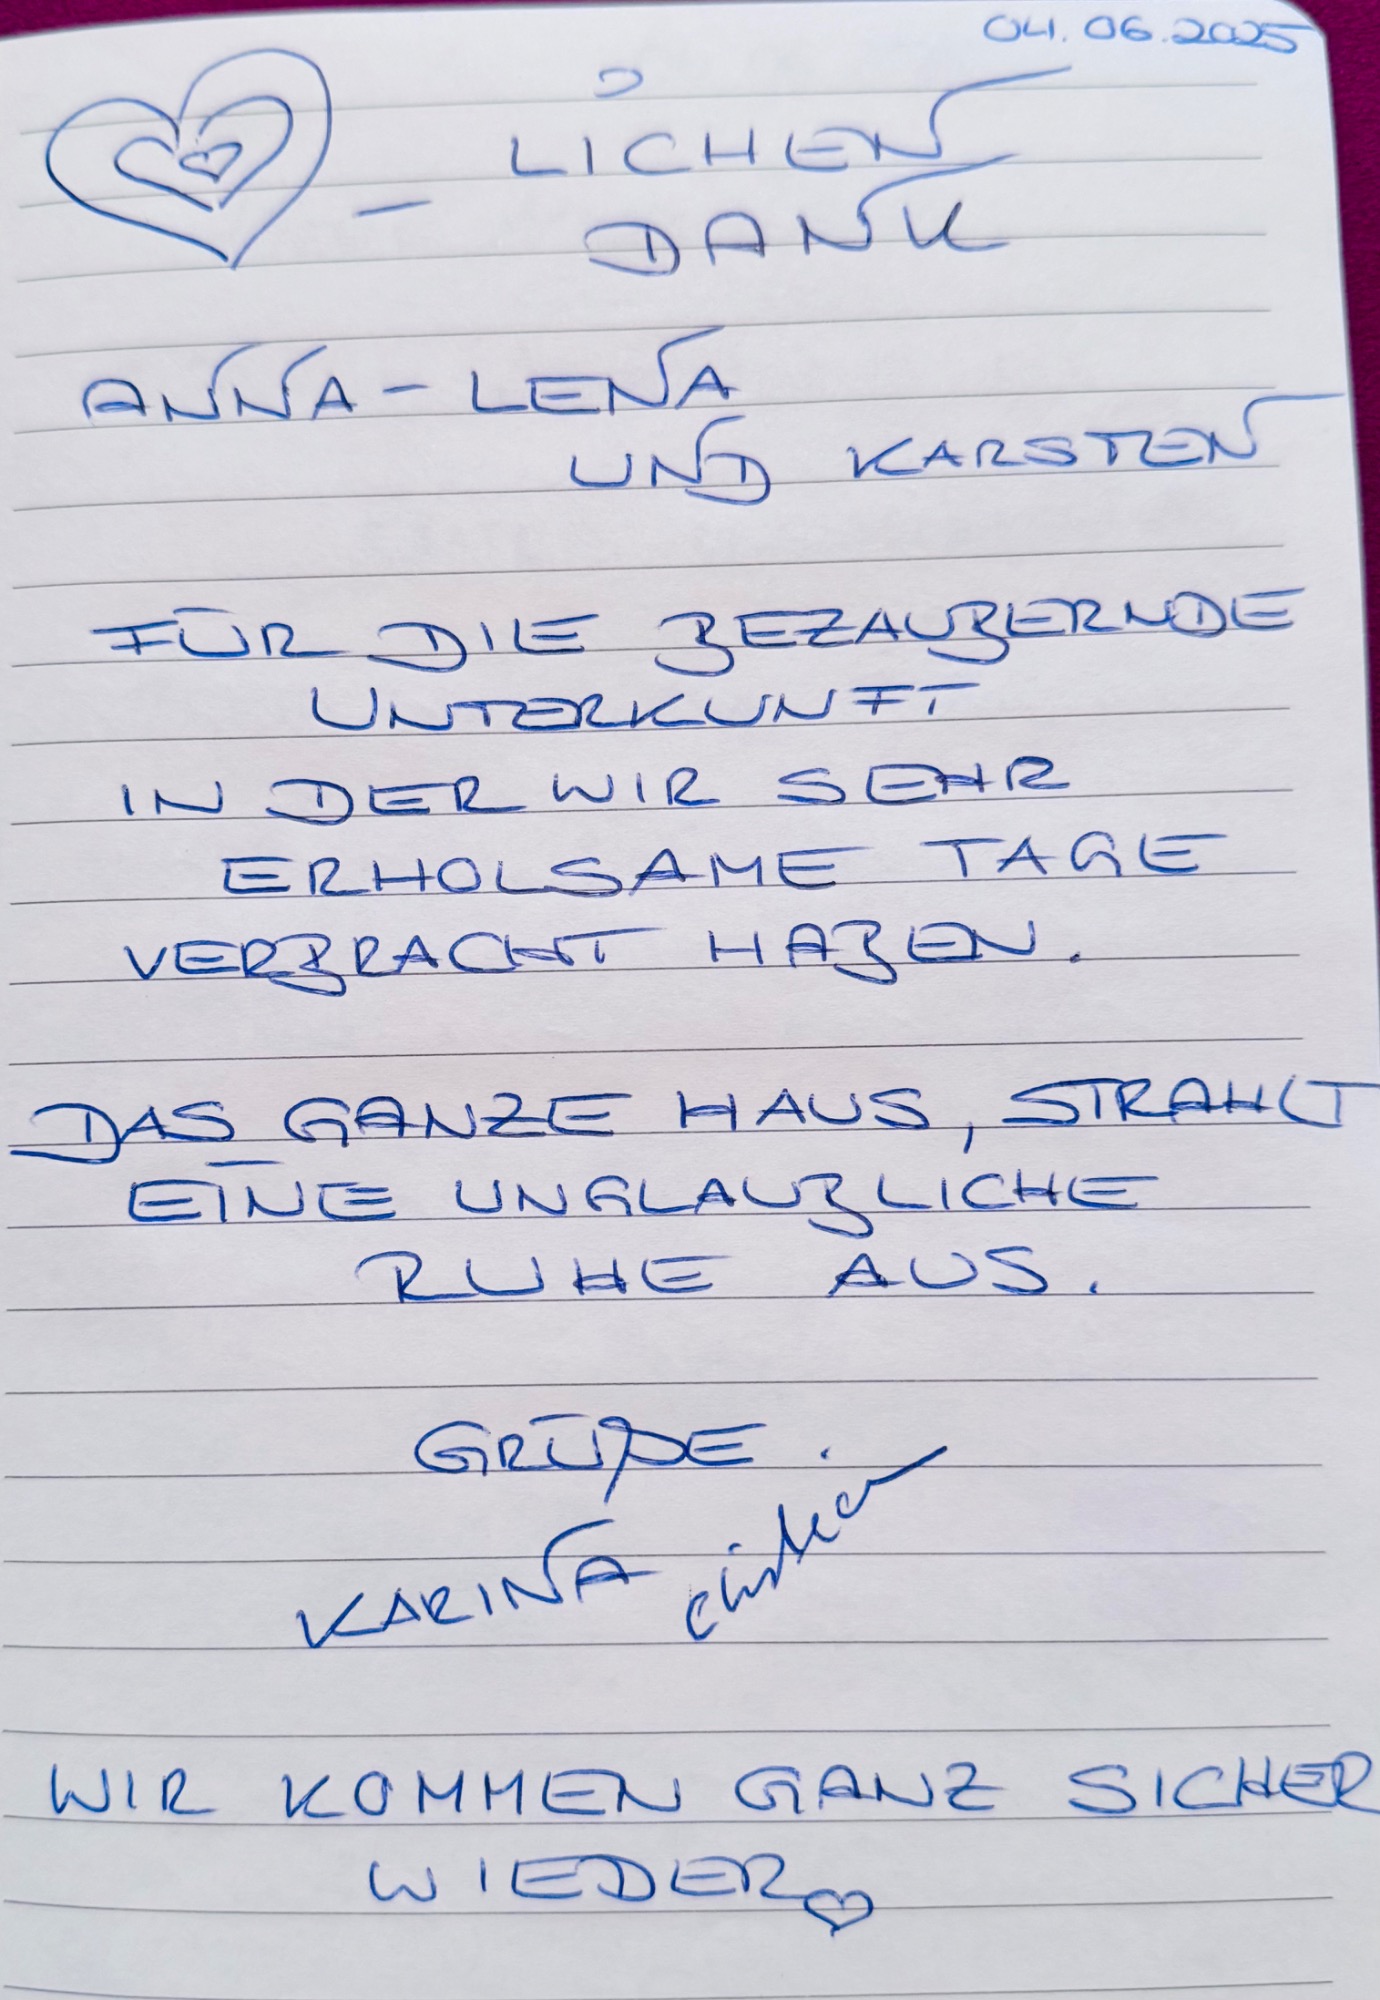 04.06.2025
- LICHEN
DANK
ANNA-LENA
UND KARSTEN
FÜR DIE BEZAUBERNDE
UNTERKUNFT
IN DER WIR SEHR
ERHOLSAME TAGE
VERBRACHT HABEN.
DAS GANZE HAUS, STRAHLT
EINE UNGLAUBLICHE
RUHE AUS.
GRÜßE.
KARINA
WIR KOMMEN GANZ SICHER
WIEDER